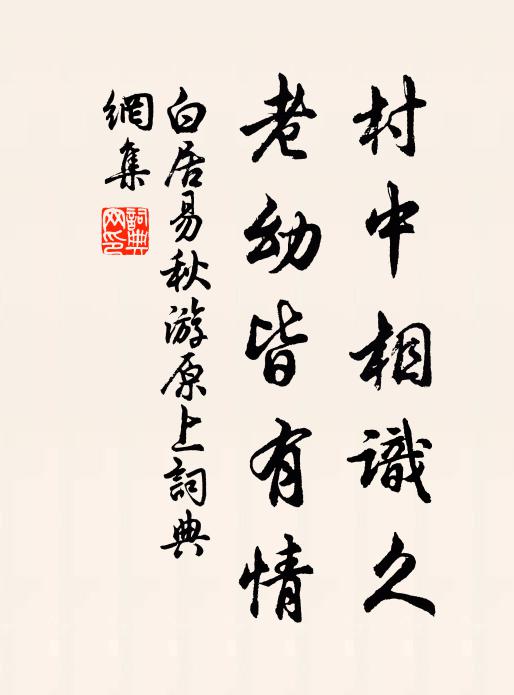 村中相識久
老幼皆有情
白居易秋游原上詞典
網集
詞典
网印